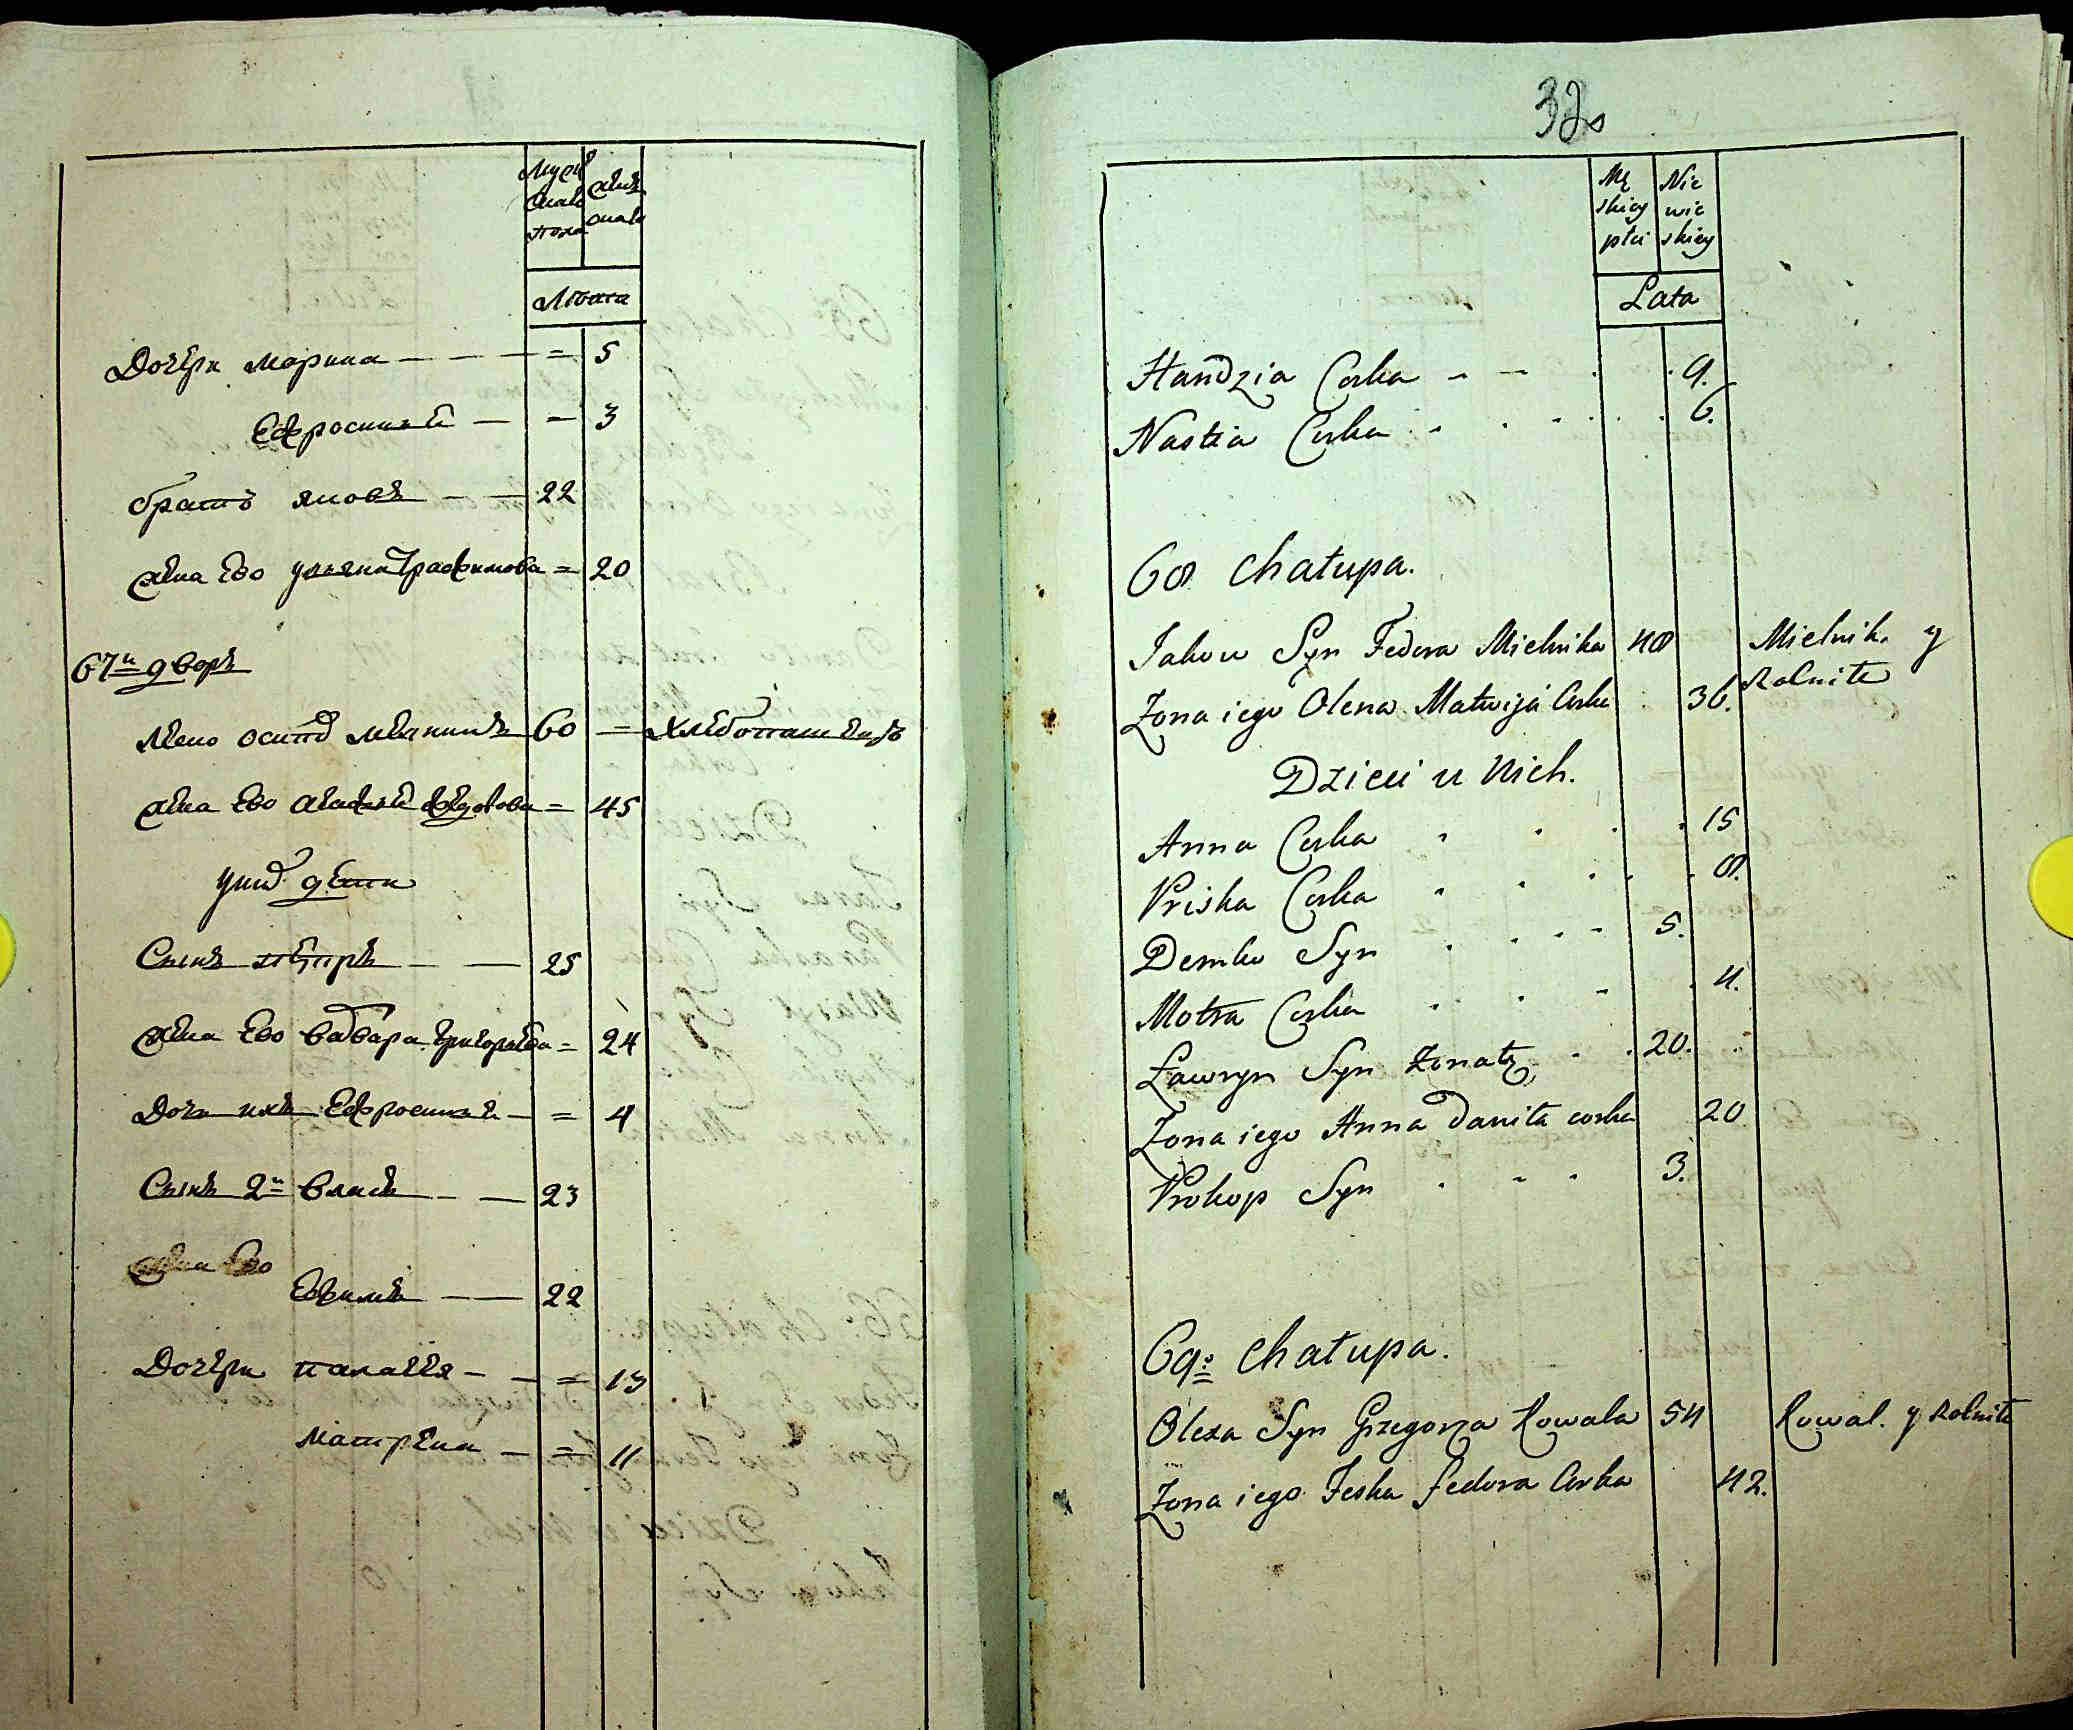 Мужѣ
ска
пола
женѣ
ска
Лѣта
Дочери Марина — — — = 5
Ефросиния — = 3
братъ яковъ — — 22
жена Ево уляна Трафимова = 20
67й дворъ
Лево осипъ 60 = хлебопашецъ
жена Ево Агафия Федотова = 45
униѣ дети
Сынъ петръ — — 25
жена Ево Варвара Григорьева = 24
Дочь ихъ Ефросиния — = 4
Сынъ 2й власъ — — 23
жена Ево
Ефимъ — — 22
Дочери палагея — — = 13
матрена — = 11
32
Mę
skiey
płci
Nie
wie
skiey
Lata
Handzia Corka - - . . 9.
Nastia Corka . . . - . . 6.
68 Chałupa.
Jakow Syn Fedora Mielnika 48 Mielnik y
Rolnik
Zona iego Olena Matwija Corka . 36.
Dzieci u Nich.
Anna Corka . . . . 15
Priska Corka . . . . . 8.
Demko Syn . . - - 5.
Motra Corka . . - . 4.
Ławryn Syn Żonaty - . 20.
Zona iego Anna Daniła corka 20
Prokop Syn . - - 3.
69: Chałupa.
Olexa Syn Grzegorza Kowala 54 Kowal. y Rolnik
Zona iego Feska fedora Corka 42.